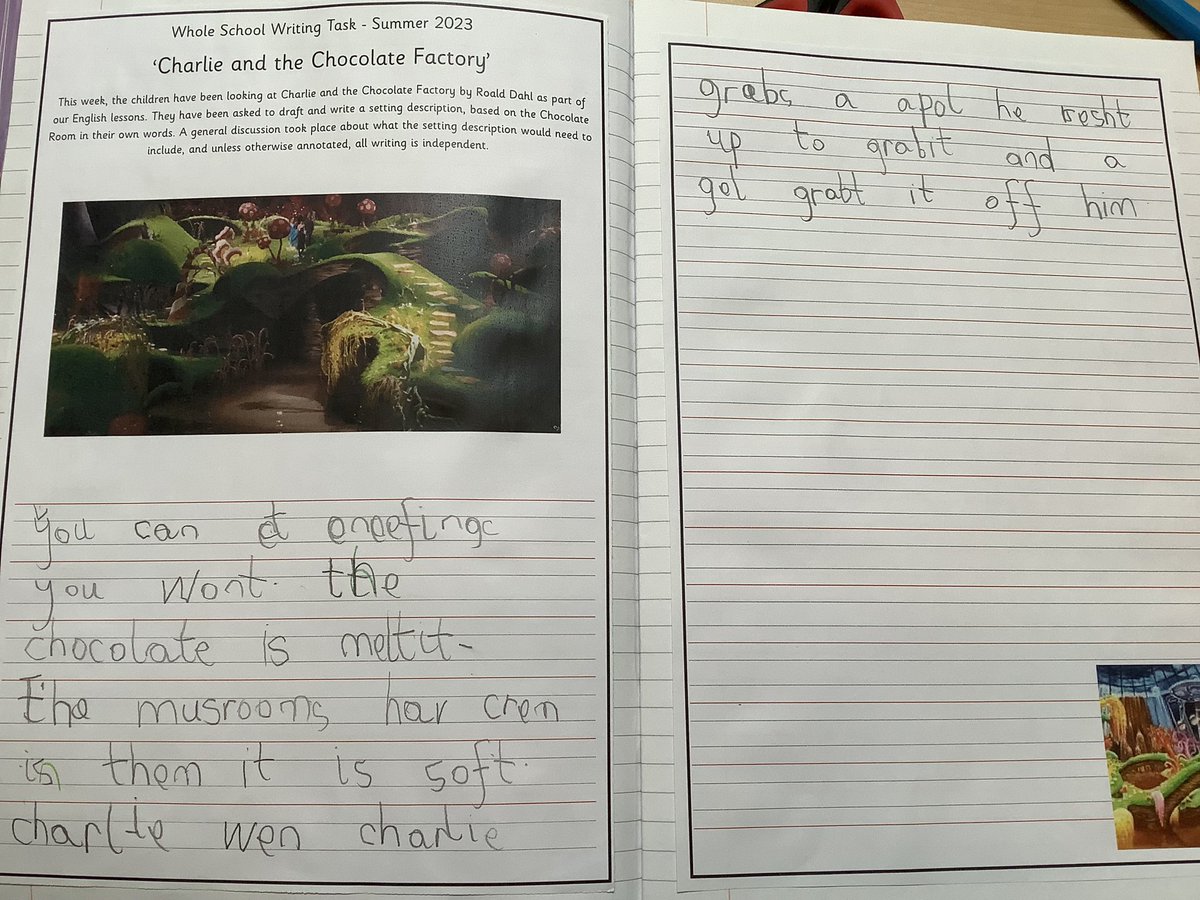 Whole School Writing Task - Summer 2023
‘Charlie and the Chocolate Factory’
This week, the children have been looking at Charlie and the Chocolate Factory by Roald Dahl as part of
our English lessons. They have been asked to draft and write a setting description, based on the Chocolate
Room in their own words. A general discussion took place about what the setting description would need to
include, and unless otherwise annotated, all writing is independent.
you can et eneefingc
you wont. the
chocolate is meltit-
the musrooms hav crem
in them it is soft.
charlie wen charlie
grabs a apol he resht
up to grabit and a
gol grabt it off him